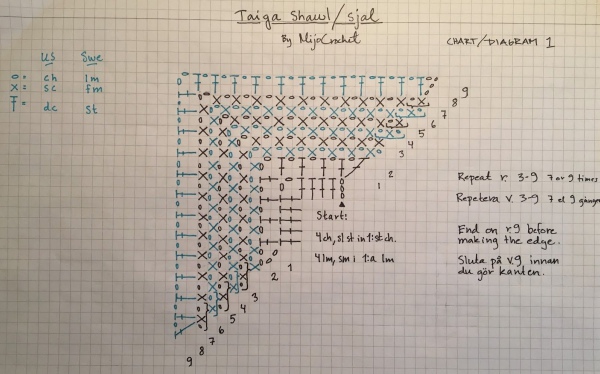 Taiga Shawl/sjal
By MijoCrochet
CHART/DIAGRAM 1
US Swe
o = ch lm
x = sc fm
Ŧ = dc st
9
8
7
6
5
4
3
2
1
Start:
4 ch, sl st in 1:st ch.
4 lm, sm i 1:a lm
Repeat r. 3-9 7 or 9 times
Repetera v. 3-9 7 el 9 gånger
End on r.9 before
making the edge.
Sluta på v.9 innan
du gör kanten.
1
2
3
4
5
6
7
8
9